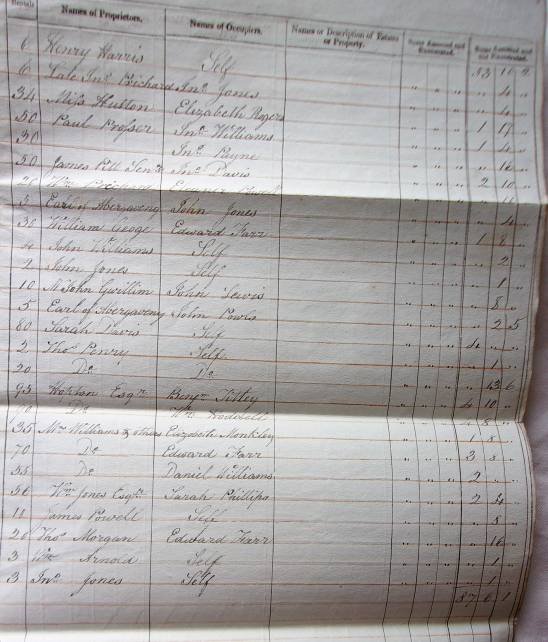 Rentals Names of Proprietors, Names of Occupiers, Names or Description of Estates or Property. Sums Assessed and Exonerated. Sums Assessed and not Exonerated.
6 Henry Harris Self 53 11 2
6 Late Jno. Prichard Jno. Jones " " " " 4 "
34 Miss Hutton Elizabeth Rogers " " " " 4 "
50 Paul Prosser Jno. Williams " " " 1 17 "
30 Jno. Payne " " " 1 4 "
50 James Pitt Senr. Jno. Davis " " " " 16 "
20 Wm. Prichard " " " 2 10 "
5 Earl of Abergaveny John Jones " " "
30 William Geoge Edward Farr " " " " 4 "
4 John Williams Self " " " 1 8 "
2 John Jones Self " " " " 2 "
10 Mr. John Gwillim John Lewis " " " " 1 "
5 Earl of Abergaveny John Powls " " " " 8 "
80 Sarah Davis Self " " " " 2 5
2 Thos. Penry Self " " " 4 " "
20 Do. Do. " " " " 1 "
93 Esqr. Benjn. Titley " " " " 13 6
70 Do. Wm. " " " 4 10 "
35 Mr. Williams & others Elizabeth Monkley " " "
70 Do. Edward Farr " " " 1 8 "
55 Do. Daniel Williams " " " 3 8 "
56 Wm. Jones Esqr. Sarah Phillips " " " 2 " "
11 James Powell Self " " " 2 4 "
26 Thos. Morgan Edward Farr " " " " 8 "
3 Wm. Arnold Self " " " " 16 "
3 Jno. Jones Self " " " " 1 "
" " " " 1 "
87 6 1